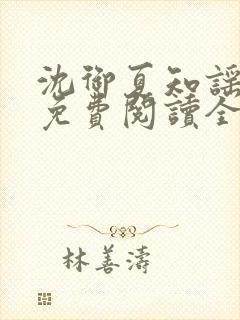 沈御夏知謠
免費閱讀全
林善濤